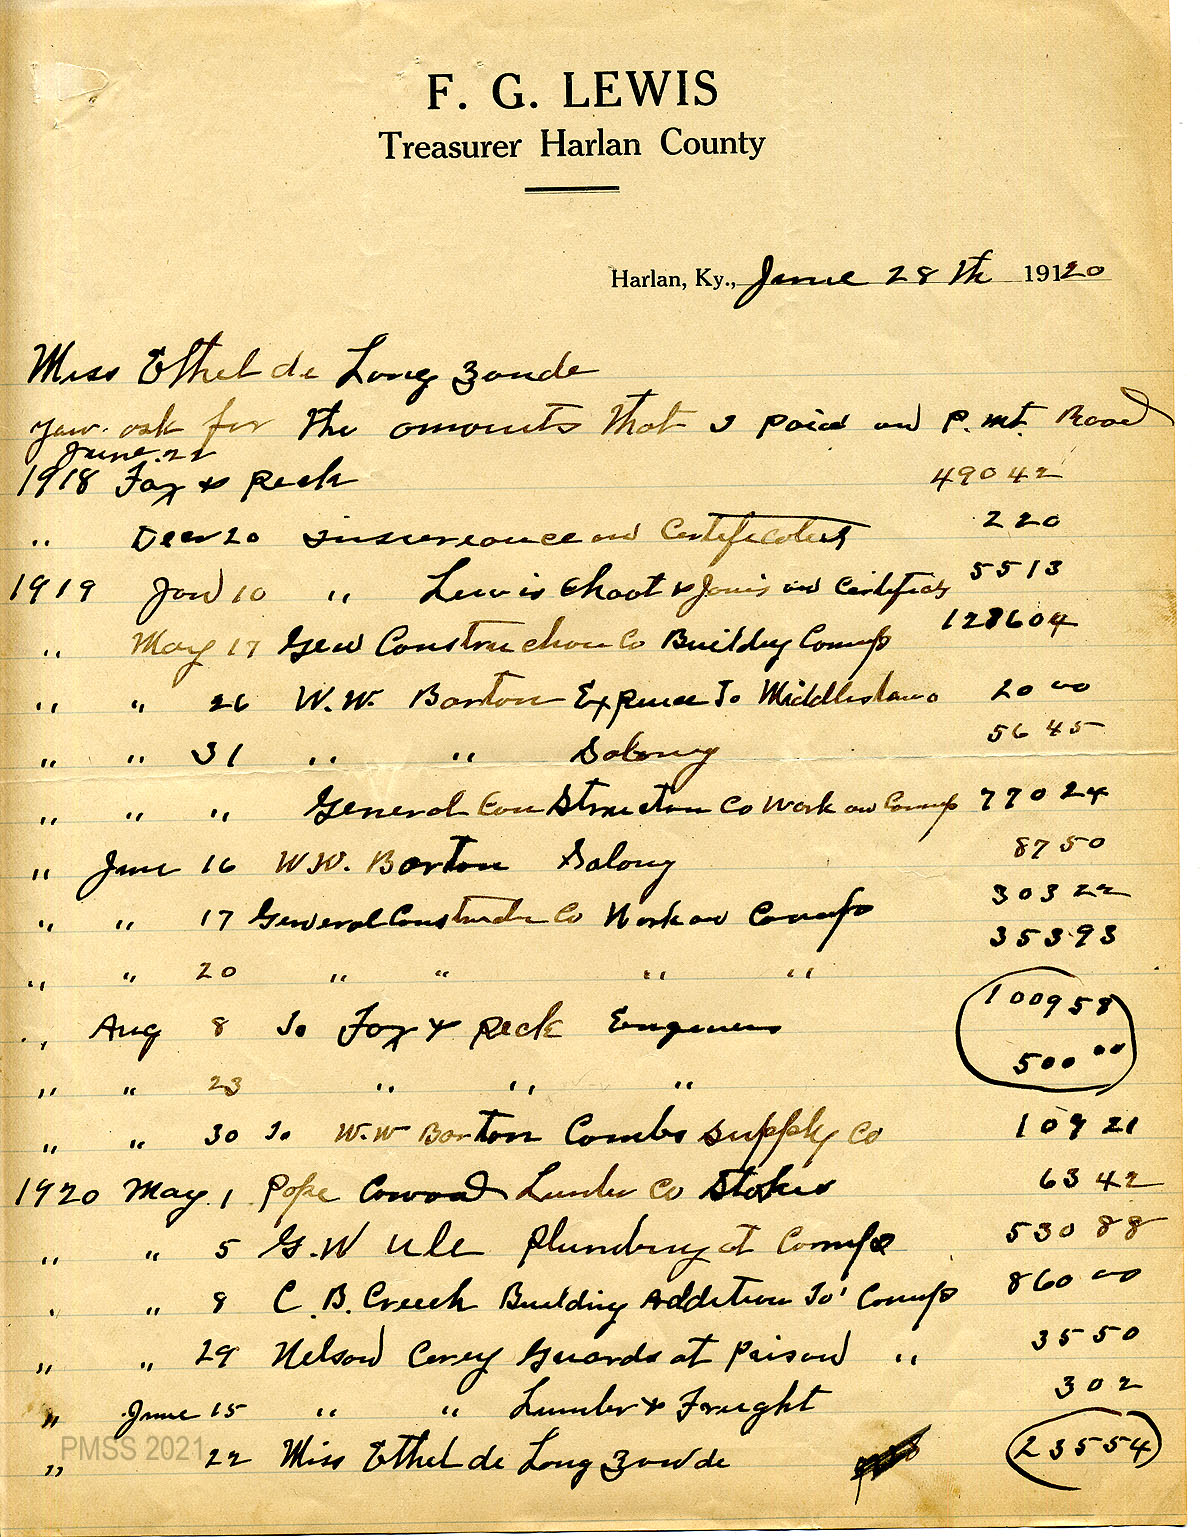 F. G. LEWIS
Treasurer Harlan County
Harlan, Ky., June 28th 19120
Miss Ethel de Long Zande
you ask for the amounts that I paid on P. Mt. Road
June. 22
1918 Fox & Peck 490 42
" Decr 20 insurance on Certificates 2 20
1919 Jan 10 " Lewis Choat & Jonis on Certificats 55 13
" May 17 Gen Construction Co Building Camps 1286 04
" " 26 W. W. Barton Expence To 20 00
" " 31 " " Salary 56 45
" " " General Construction Co Work on Camp 770 24
" June 16 W. W. Barton Salary 87 50
" " 17 General Constructin Co Work on Camp 303 22
" " 20 " " " " 353 93
" Aug 8 To Fox & Peck Engineers 1009 58
" " 23 " " " 500 00
" " 30 To W. W Barton Combs Supply Co 109 21
1920 May. 1 Pope Cawood Lumber Co Stokes 63 42
" " 5 G. W Ule Plumbing at Camps 530 88
" " 8 C. B. Creech Building Addition To Camps 860 00
" " 29 Nelson Corey Guards at Prison " 35 50
" June 15 " " Lumber & Freight 3 02
" 22 Miss Ethel de Long Zande 235 54
PMSS 2021